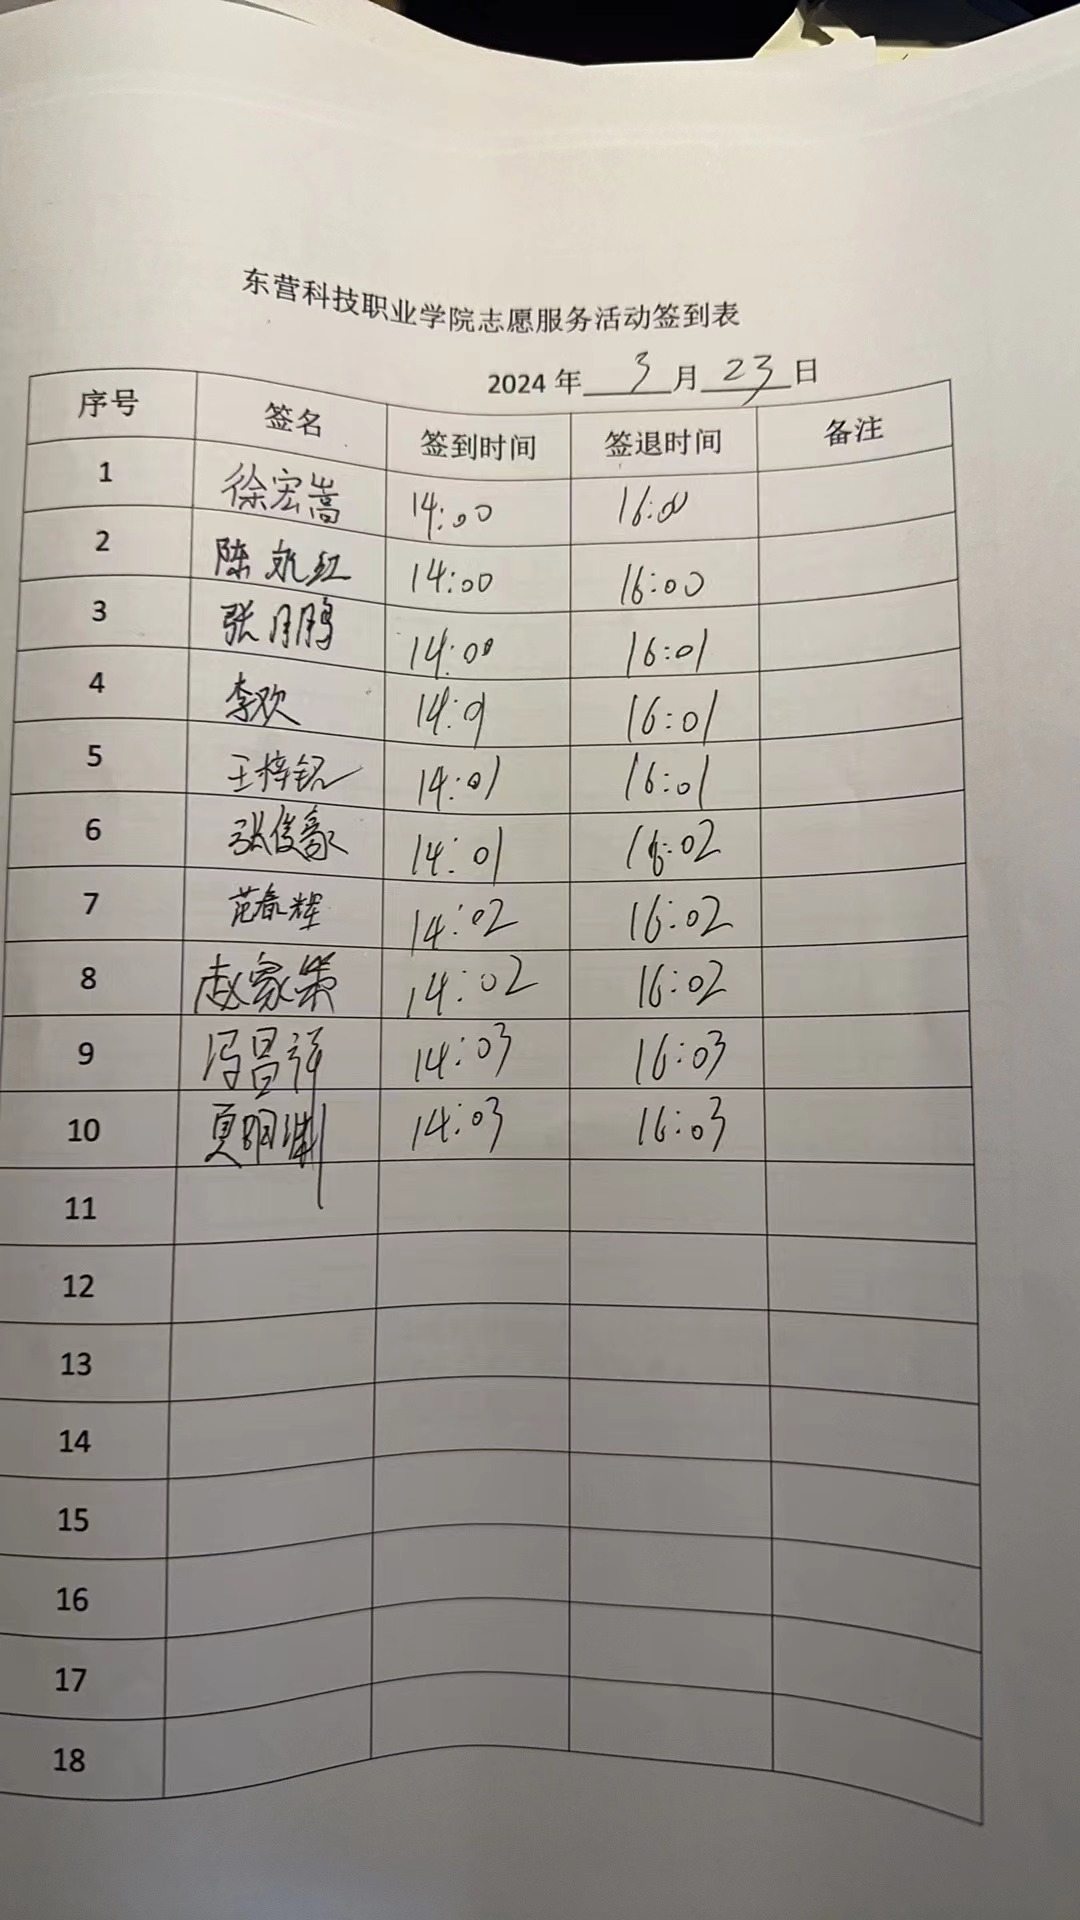 东营科技职业学院志愿服务活动签到表
2024 年 3 月 23 日
序号 签名 签到时间 签退时间 备注
1 徐宏嵩 14:00 16:00
2 陈 红 14:00 16:00
3 张月鹏 14:00 16:01
4 李欢 14:01 16:01
5 王梓铭 14:01 16:01
6 张俊豪 14:01 16:02
7 范春辉 14:02 16:02
8 赵家策 14:02 16:02
9 冯昌祥 14:03 16:03
10 夏明渊 14:03 16:03
11
12
13
14
15
16
17
18